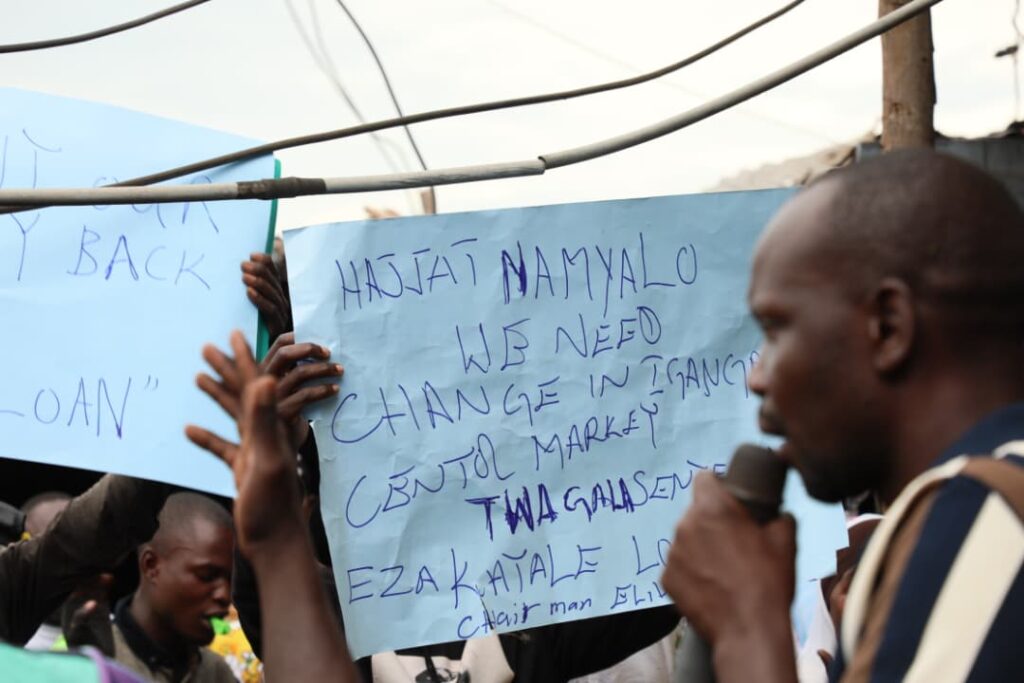 OUR
BACK
LOAN"
HAJJAT NAMYALO
WE NEED
CHANGE IN IGANGA
CENTOL MARKET
TWAGALASENTE
EZAKATALE
Chair man